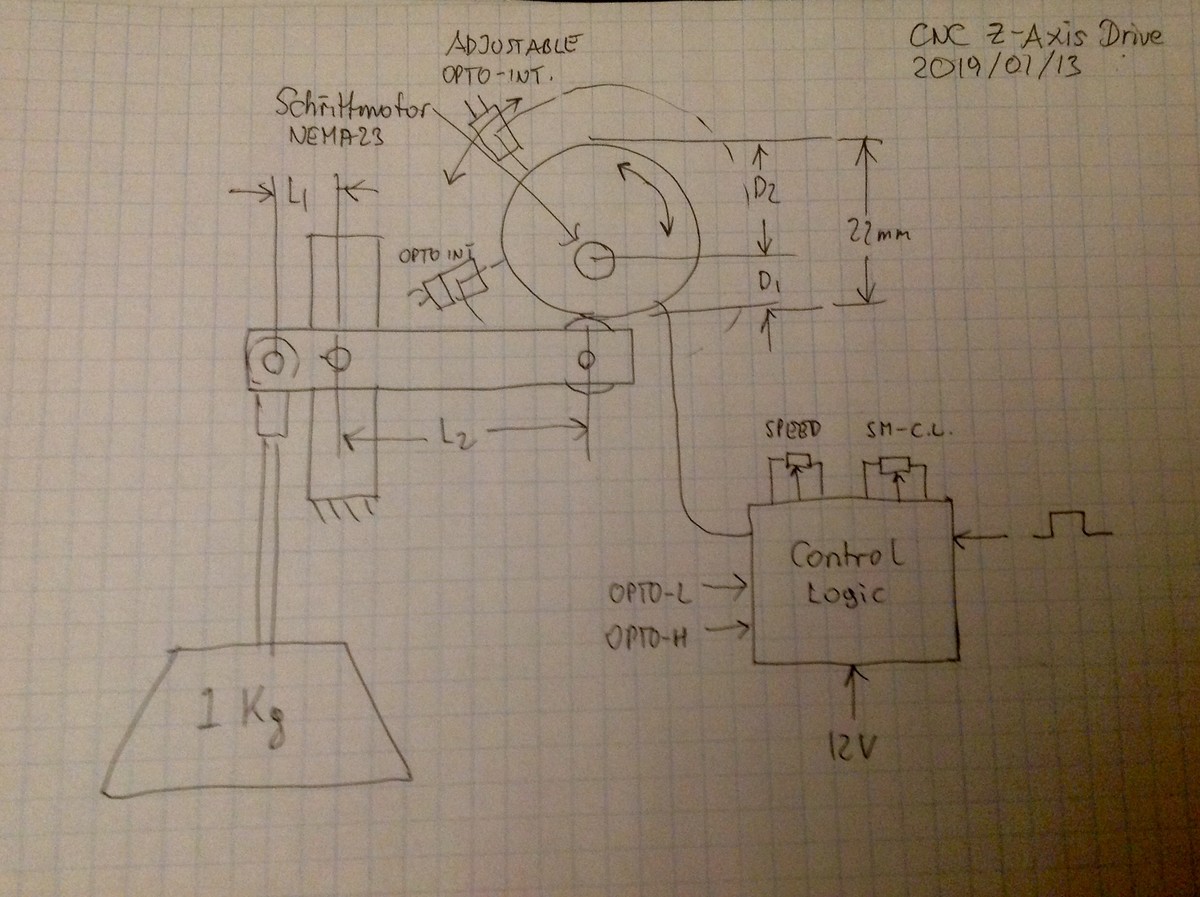 CNC Z-Axis Drive
2019/01/13
ADJUSTABLE
OPTO-INT.
Schrittmotor
NEMA23
L1
D2
22mm
OPTO INT
D1
L2
SPEED
SM-C.L.
Control
Logic
OPTO-L
OPTO-H
1 Kg
12V